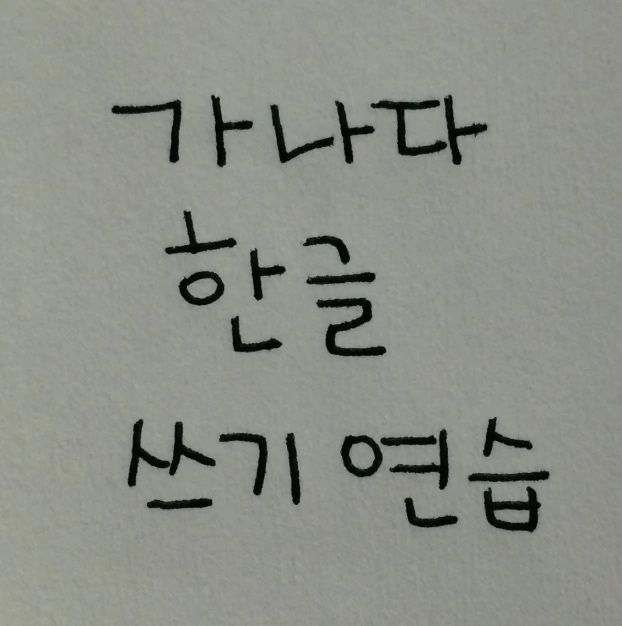 가나다
한글
쓰기 연습